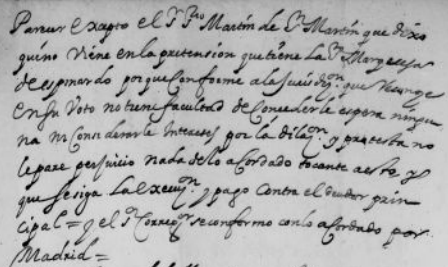 Parezer excepto el Sr. Dn. Martin de Sn. Martin que dixo
que no viene en la pretension que tiene la Sra. Marquesa
de espinardo porque Conforme a la Jurisdizn. que
en su Voto no tiene facultad de Concederle espera ningu
na ni Considerarle Intereses por la dilazn. y protesta no
le pare perjuicio nada de lo acordado tocante a esto, y
que se siga la execuzn. y pago Contra el deudor prin
cipal = y el Sr. Corregr. se conformo con lo acordado por
Madrid =